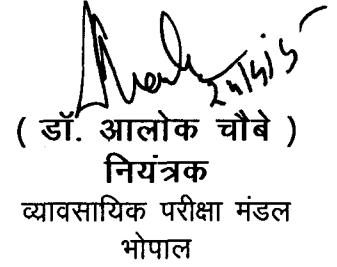 ( डॉ. आलोक चौबे )
नियंत्रक
व्यावसायिक परीक्षा मंडल
भोपाल